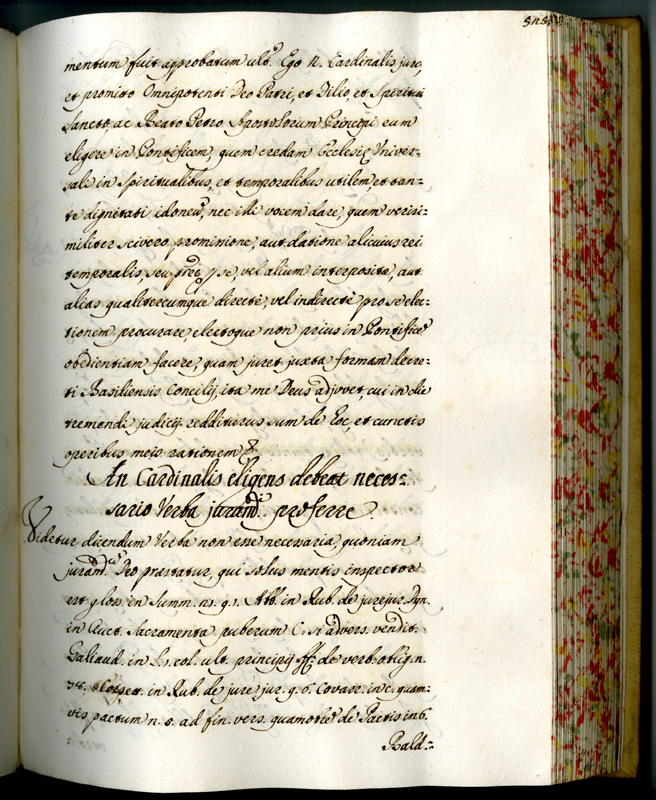 mentum fuit approbatum ult.º Ego N. Cardinalis juro,
et promito Omnipotenti Deo Patri, et Filio et Spiritui
Sancto, ac Beato Petro Apostolorum Principi eum
eligere in Pontificem, quem credam Ecclesię Vniver=
sali in Spiritualibus, et temporalibus utilem, et tan=
te dignitati idoneũ, nec ille vocem dare, quem verisi=
militer scivero prominione, aut datione alicuius rei
temporalis, seu prec p se, vel alium interposita, aut
alias qualitercumque directè, vel indirectè pro se elec=
tionem procurare, electoque non prius in Pontificẽ
obedientiam facere, quam juret juxta formam decre=
ti Basiliensis Concilij, ita me Deus adjovet, cui in die
tremendi judicij redditurus sum de Eoc et cunctis
operibus meis rationem
An Cardinalis eligens debeat neces=
sario Verba jurandi proferre.
Videtur dicendum Verba non esse necessaria, quoniam
juram.tũ Deo prastatur, qui solus mentis inspector
est glos. in summ. ns. q. 1. Abb. in Rub. de jurejur. Dyn.
in Auct. Sacramenta puberum C. si advers. vendit.
Galiaud. in L. 1. col. ult. principij ff. de verb. oblig. n.
in Rub. de jure jur. q. 6. Covarr. in c. quam=
vis pactum n. 5. ad fin. vers. quamobrẽ de Pactis in 6.
Bald.=